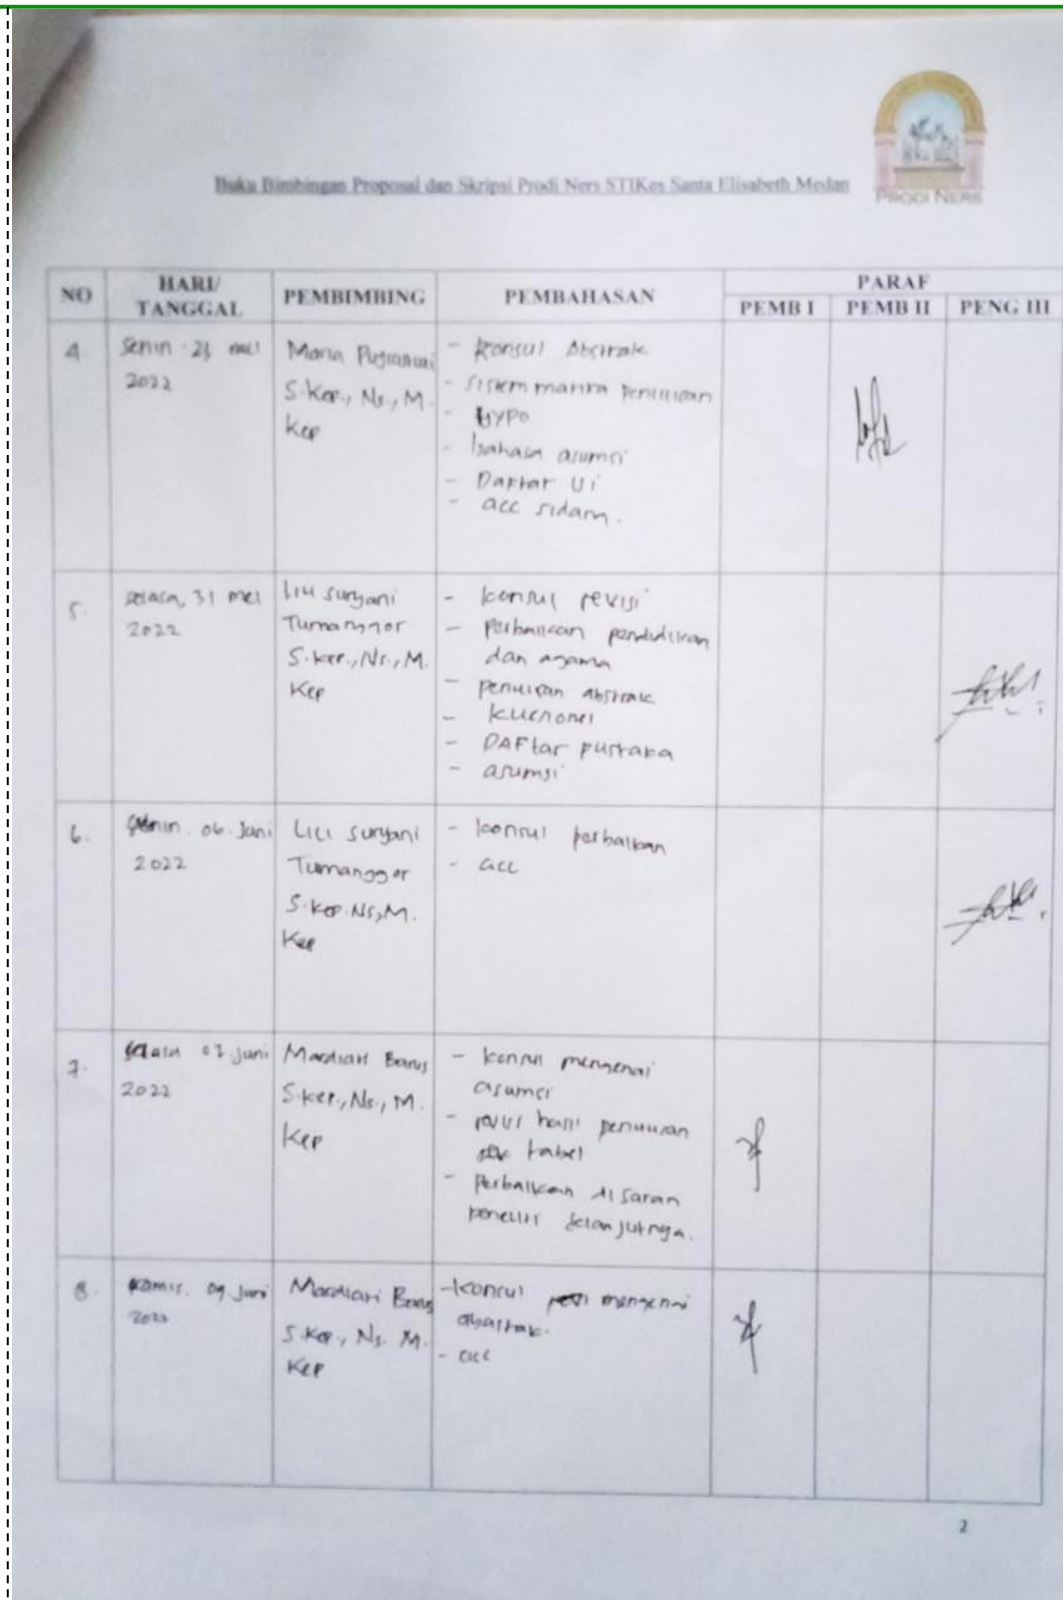 Buku Bimbingan Proposal dan Skripsi Prodi Ners STIKes Santa Elisabeth Medan
PRODI NERS
NO
HARI/
TANGGAL
PEMBIMBING
PEMBAHASAN
PARAF
PEMB I
PEMB II
PENG III
4.
Senin 23 mei
2022
Maria
S.Kep., Ns., M.
Kep
- Konsul Abstrak
-
- typo
- bahasa asumsi
- Daftar
- acc sidang.
5.
selasa, 31 mei
2022
Lili Suryani
Tumanggor
S.kep., Ns., M.
Kep
- konsul revisi
- perbaikan pendidikan
dan agama
- abstrak
-
- DAFtar pustaka
- asumsi
6.
Senin. 06. Juni
2022
Lili Suryani
Tumanggor
S.Kep.Ns,M.
Kep
- konsul perbaikan
- acc
7.
Selasa 07 Juni
2022
Mardiati Barus
S.kep., Ns., M.
Kep
- konsul mengenai
asumsi
- hasil
tabel
- Perbaikan di saran
peneliti selanjutnya.
8.
Kamis. 09 Juni
Mardiati Barus
S.Kep., Ns. M.
Kep
- konsul mengenai
- acc
2